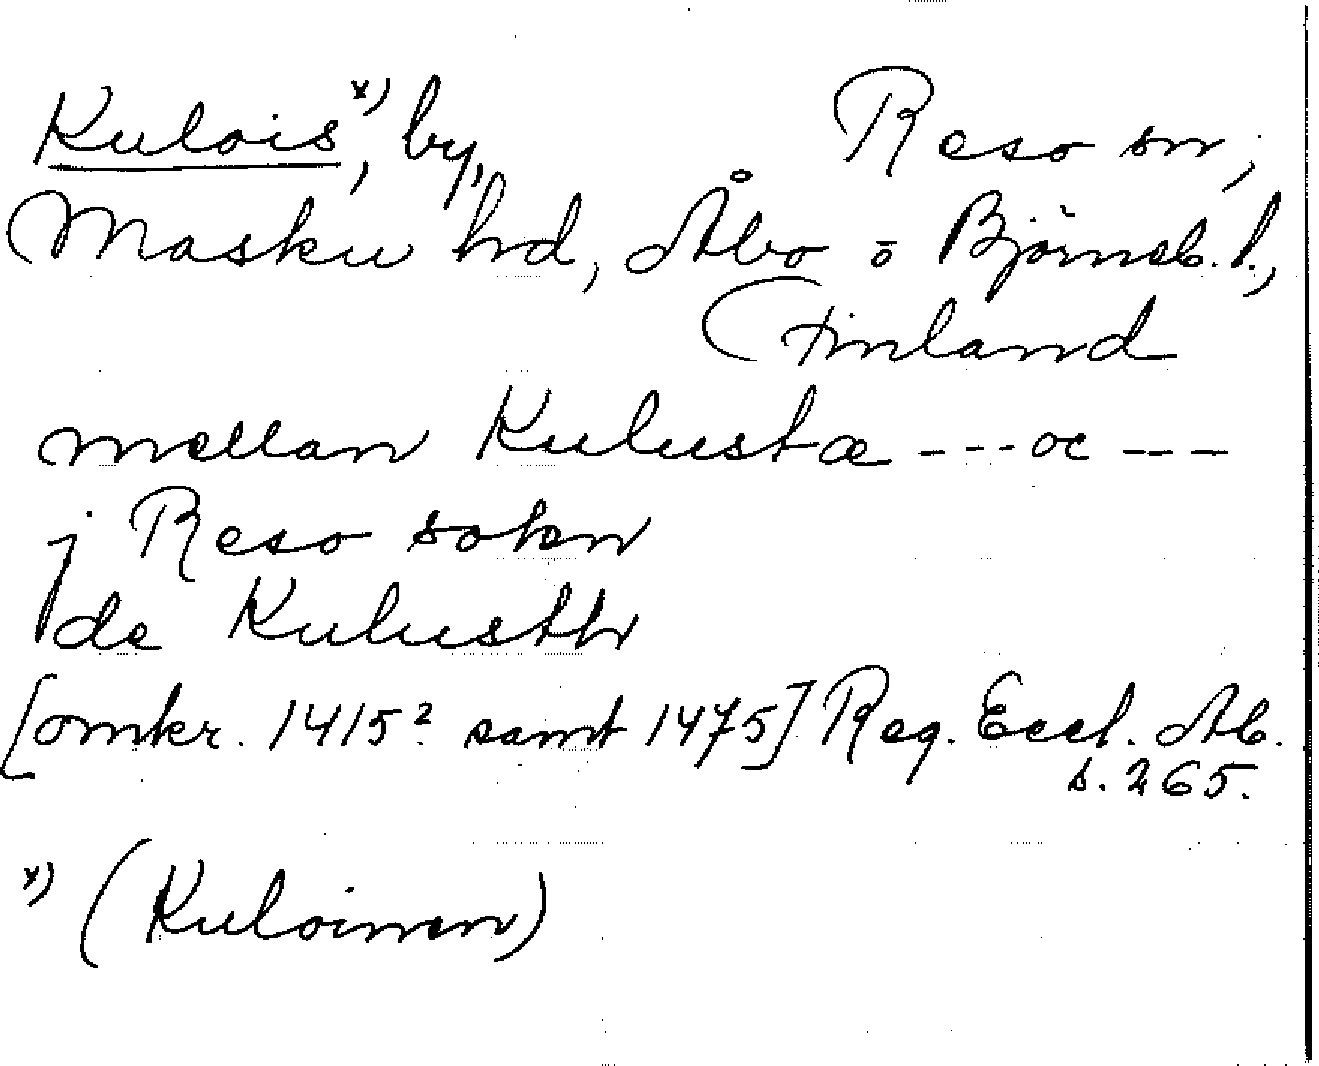 Kulois x), by, Reso sn,
Masku hd, Åbo o Björneb. l.,
Finland
mellan Kulustæ --- oc ---
j Reso sokn
de Kulusth
[omkr. 1415? samt 1475] Reg. Eccl. Ab.
s. 265.
x) (Kuloinen)